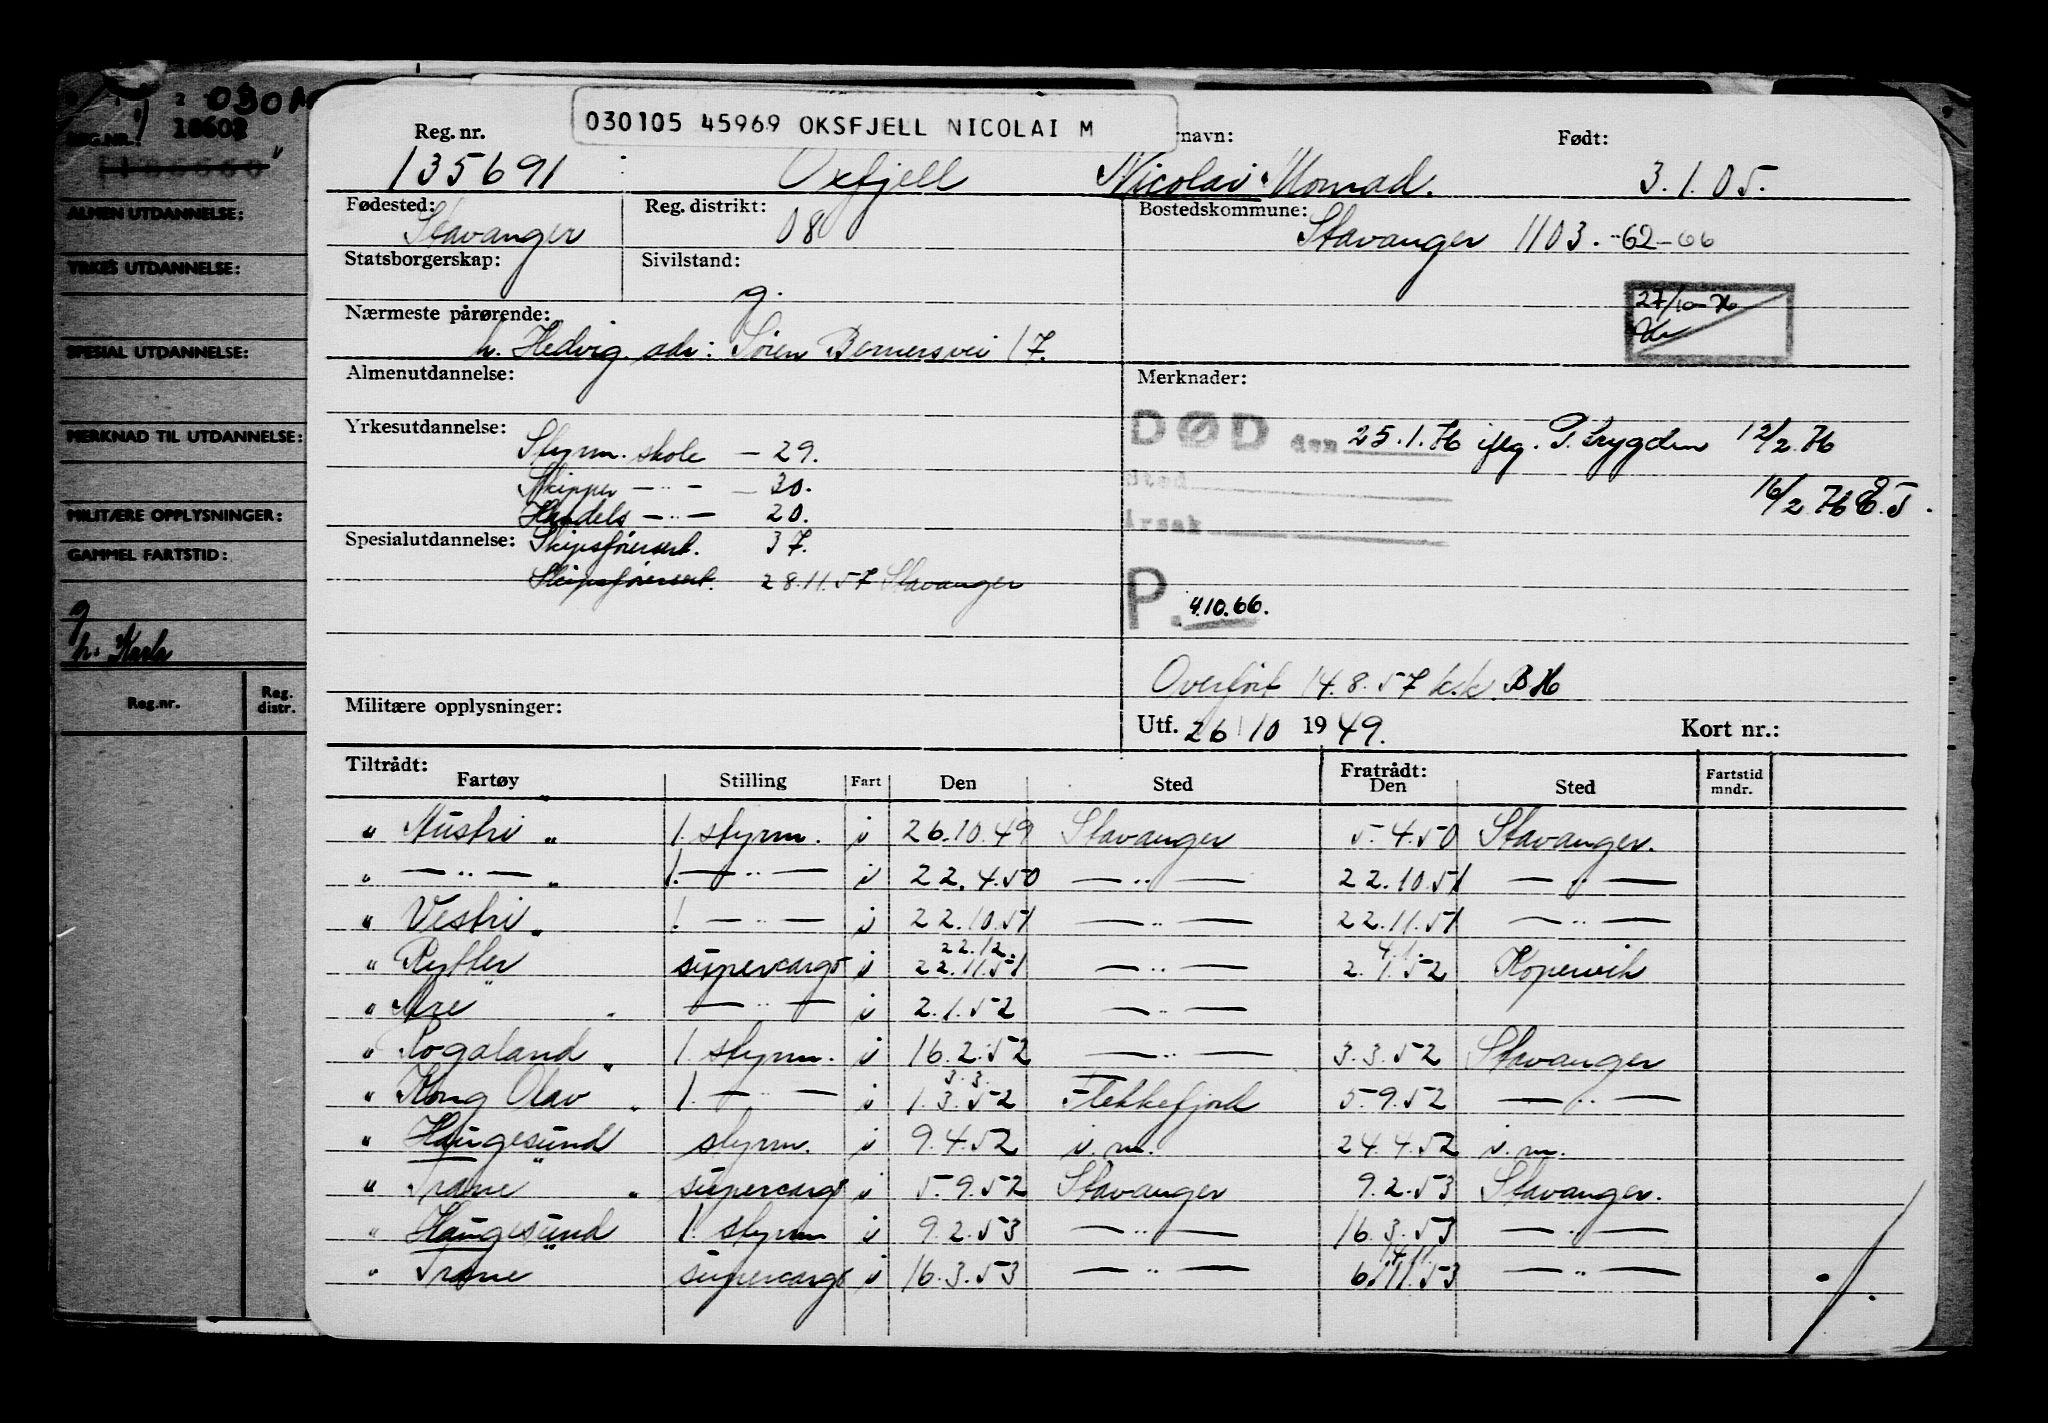 030105 45969 OKSFJELL NICOLAI M
Reg. nr. rnavn: Født:
135691 Oxfjell Nicolai Monrad. 3.1.05.
Fødested: Reg. distrikt: Bostedskommune:
Stavanger 08 Stavanger 1103. -62-66
Statsborgerskap: Sivilstand:
g.
27/10-76
Nærmeste pårørende:
h. Hedvig. adr: Søren Bernersvei 17.
Almenutdannelse: Merknader:
DØD den 25.1.76 iflg. P. trygden 12/2.76
Yrkesutdannelse:
Styrm. skole - 29.
Sted
Skipper — " — 30. 16/2.76 E.T.
Handels — " — 20.
Årsak
Spesialutdannelse: Skipsførersert. 37.
Skipsførersert. 28.11.57 Stavanger
P. 4.10.66.
Overført 14.8.57 k.k. BH
Militære opplysninger:
Utf. 26/10 1949. Kort nr.:
Tiltrådt: Fratrådt:
Fartøy Stilling Fart Den Sted Den Sted Fartstid mndr.
" Austri " 1. styrm. i 26.10.49 Stavanger 5.4.50 Stavanger.
" — " — " 1. — " — i 22.4.50 — " — 22.10.51 — " —
" Vestri " 1. — " — i 22.10.51 — " — 22.11.51 — " —
22.12. 4.1.
" Ryfler " supercargo i 22.11.51 — " — 2.1.52 Kopervik
" Are " — " — i 2.1.52 — " —
" Rogaland " 1. styrm. i 16.2.52 — " — 3.3.52 Stavanger
3.3.
" Kong Olav " 1. — " — i 1.3.52 Flekkefjord 5.9.52 — " —
" Haugesund " styrm. i 9.4.52 i.m. 24.4.52 i.m.
" Trane " supercargo i 5.9.52 Stavanger 9.2.53 Stavanger.
" Haugesund " 1. styrm i 9.2.53 — " — 16.3.53 — " —
14.11
" Trane " supercargo i 16.3.53 — " — 6.11.53 — " —
2 0301
REG.NR. 18608
ALMEN UTDANNELSE:
YRKES UTDANNELSE:
SPESIAL UTDANNELSE:
MERKNAD TIL UTDANNELSE:
MILITÆRE OPPLYSNINGER:
GAMMEL FARTSTID:
g
h. Karla
Reg.nr. Reg. distr.